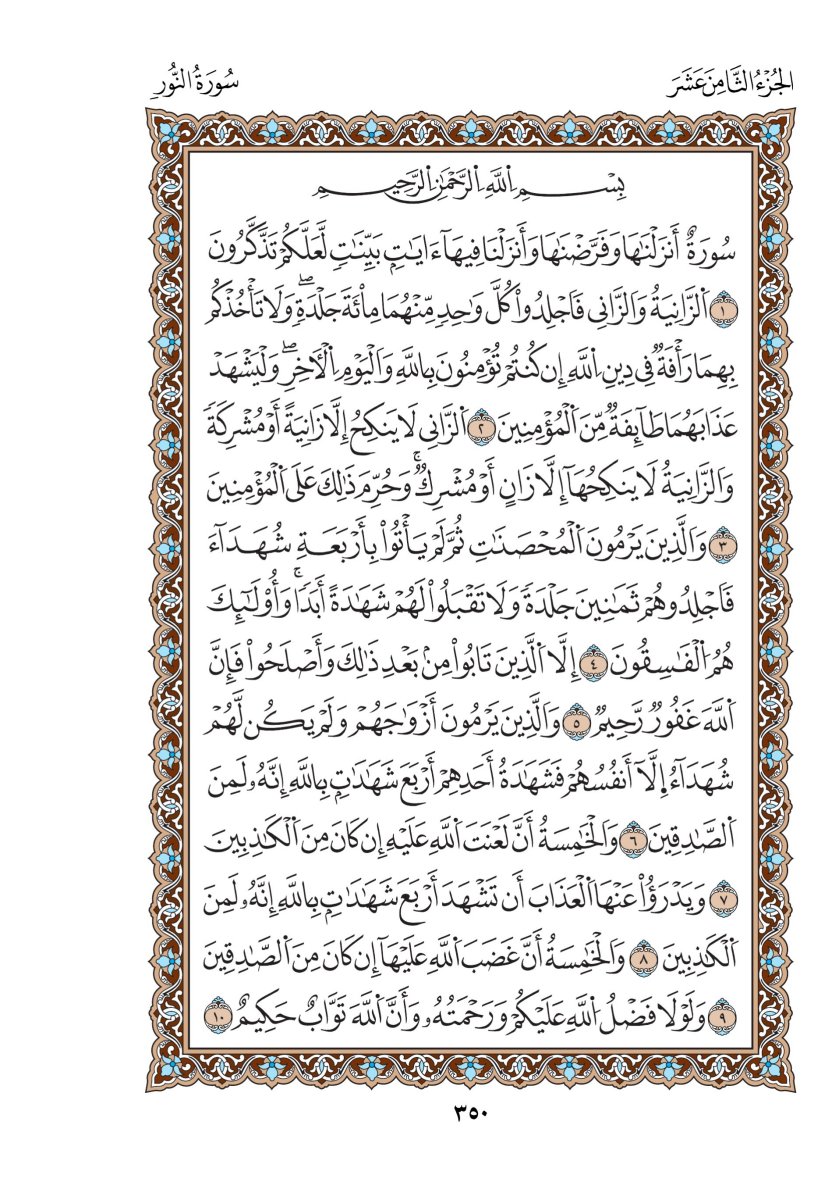 الجُزْءُ الثَّامِنَ عَشَرَ
سُورَةُ النُّورِ
بِسْمِ ٱللَّهِ ٱلرَّحْمَٰنِ ٱلرَّحِيمِ
سُورَةٌ أَنزَلْنَٰهَا وَفَرَضْنَٰهَا وَأَنزَلْنَا فِيهَآ ءَايَٰتٍۭ بَيِّنَٰتٍ لَّعَلَّكُمْ تَذَكَّرُونَ
١ ٱلزَّانِيَةُ وَٱلزَّانِى فَٱجْلِدُوا۟ كُلَّ وَٰحِدٍ مِّنْهُمَا مِا۟ئَةَ جَلْدَةٍۖ وَلَا تَأْخُذْكُم
بِهِمَا رَأْفَةٌ فِى دِينِ ٱللَّهِ إِن كُنتُمْ تُؤْمِنُونَ بِٱللَّهِ وَٱلْيَوْمِ ٱلْأَخِرِۖ وَلْيَشْهَدْ
عَذَابَهُمَا طَآئِفَةٌ مِّنَ ٱلْمُؤْمِنِينَ ٢ ٱلزَّانِى لَا يَنكِحُ إِلَّا زَانِيَةً أَوْ مُشْرِكَةً
وَٱلزَّانِيَةُ لَا يَنكِحُهَآ إِلَّا زَانٍ أَوْ مُشْرِكٌۚ وَحُرِّمَ ذَٰلِكَ عَلَى ٱلْمُؤْمِنِينَ
٣ وَٱلَّذِينَ يَرْمُونَ ٱلْمُحْصَنَٰتِ ثُمَّ لَمْ يَأْتُوا۟ بِأَرْبَعَةِ شُهَدَآءَ
فَٱجْلِدُوهُمْ ثَمَٰنِينَ جَلْدَةً وَلَا تَقْبَلُوا۟ لَهُمْ شَهَٰدَةً أَبَدًاۚ وَأُو۟لَٰٓئِكَ
هُمُ ٱلْفَٰسِقُونَ ٤ إِلَّا ٱلَّذِينَ تَابُوا۟ مِنۢ بَعْدِ ذَٰلِكَ وَأَصْلَحُوا۟ فَإِنَّ
ٱللَّهَ غَفُورٌ رَّحِيمٌ ٥ وَٱلَّذِينَ يَرْمُونَ أَزْوَٰجَهُمْ وَلَمْ يَكُن لَّهُمْ
شُهَدَآءُ إِلَّآ أَنفُسُهُمْ فَشَهَٰدَةُ أَحَدِهِمْ أَرْبَعَ شَهَٰدَٰتٍۭ بِٱللَّهِ إِنَّهُۥ لَمِنَ
ٱلصَّٰدِقِينَ ٦ وَٱلْخَٰمِسَةُ أَنَّ لَعْنَتَ ٱللَّهِ عَلَيْهِ إِن كَانَ مِنَ ٱلْكَٰذِبِينَ
٧ وَيَدْرَؤُا۟ عَنْهَا ٱلْعَذَابَ أَن تَشْهَدَ أَرْبَعَ شَهَٰدَٰتٍۭ بِٱللَّهِ إِنَّهُۥ لَمِنَ
ٱلْكَٰذِبِينَ ٨ وَٱلْخَٰمِسَةُ أَنَّ غَضَبَ ٱللَّهِ عَلَيْهَآ إِن كَانَ مِنَ ٱلصَّٰدِقِينَ
٩ وَلَوْلَا فَضْلُ ٱللَّهِ عَلَيْكُمْ وَرَحْمَتُهُۥ وَأَنَّ ٱللَّهَ تَوَّابٌ حَكِيمٌ ١٠
٣٥٠